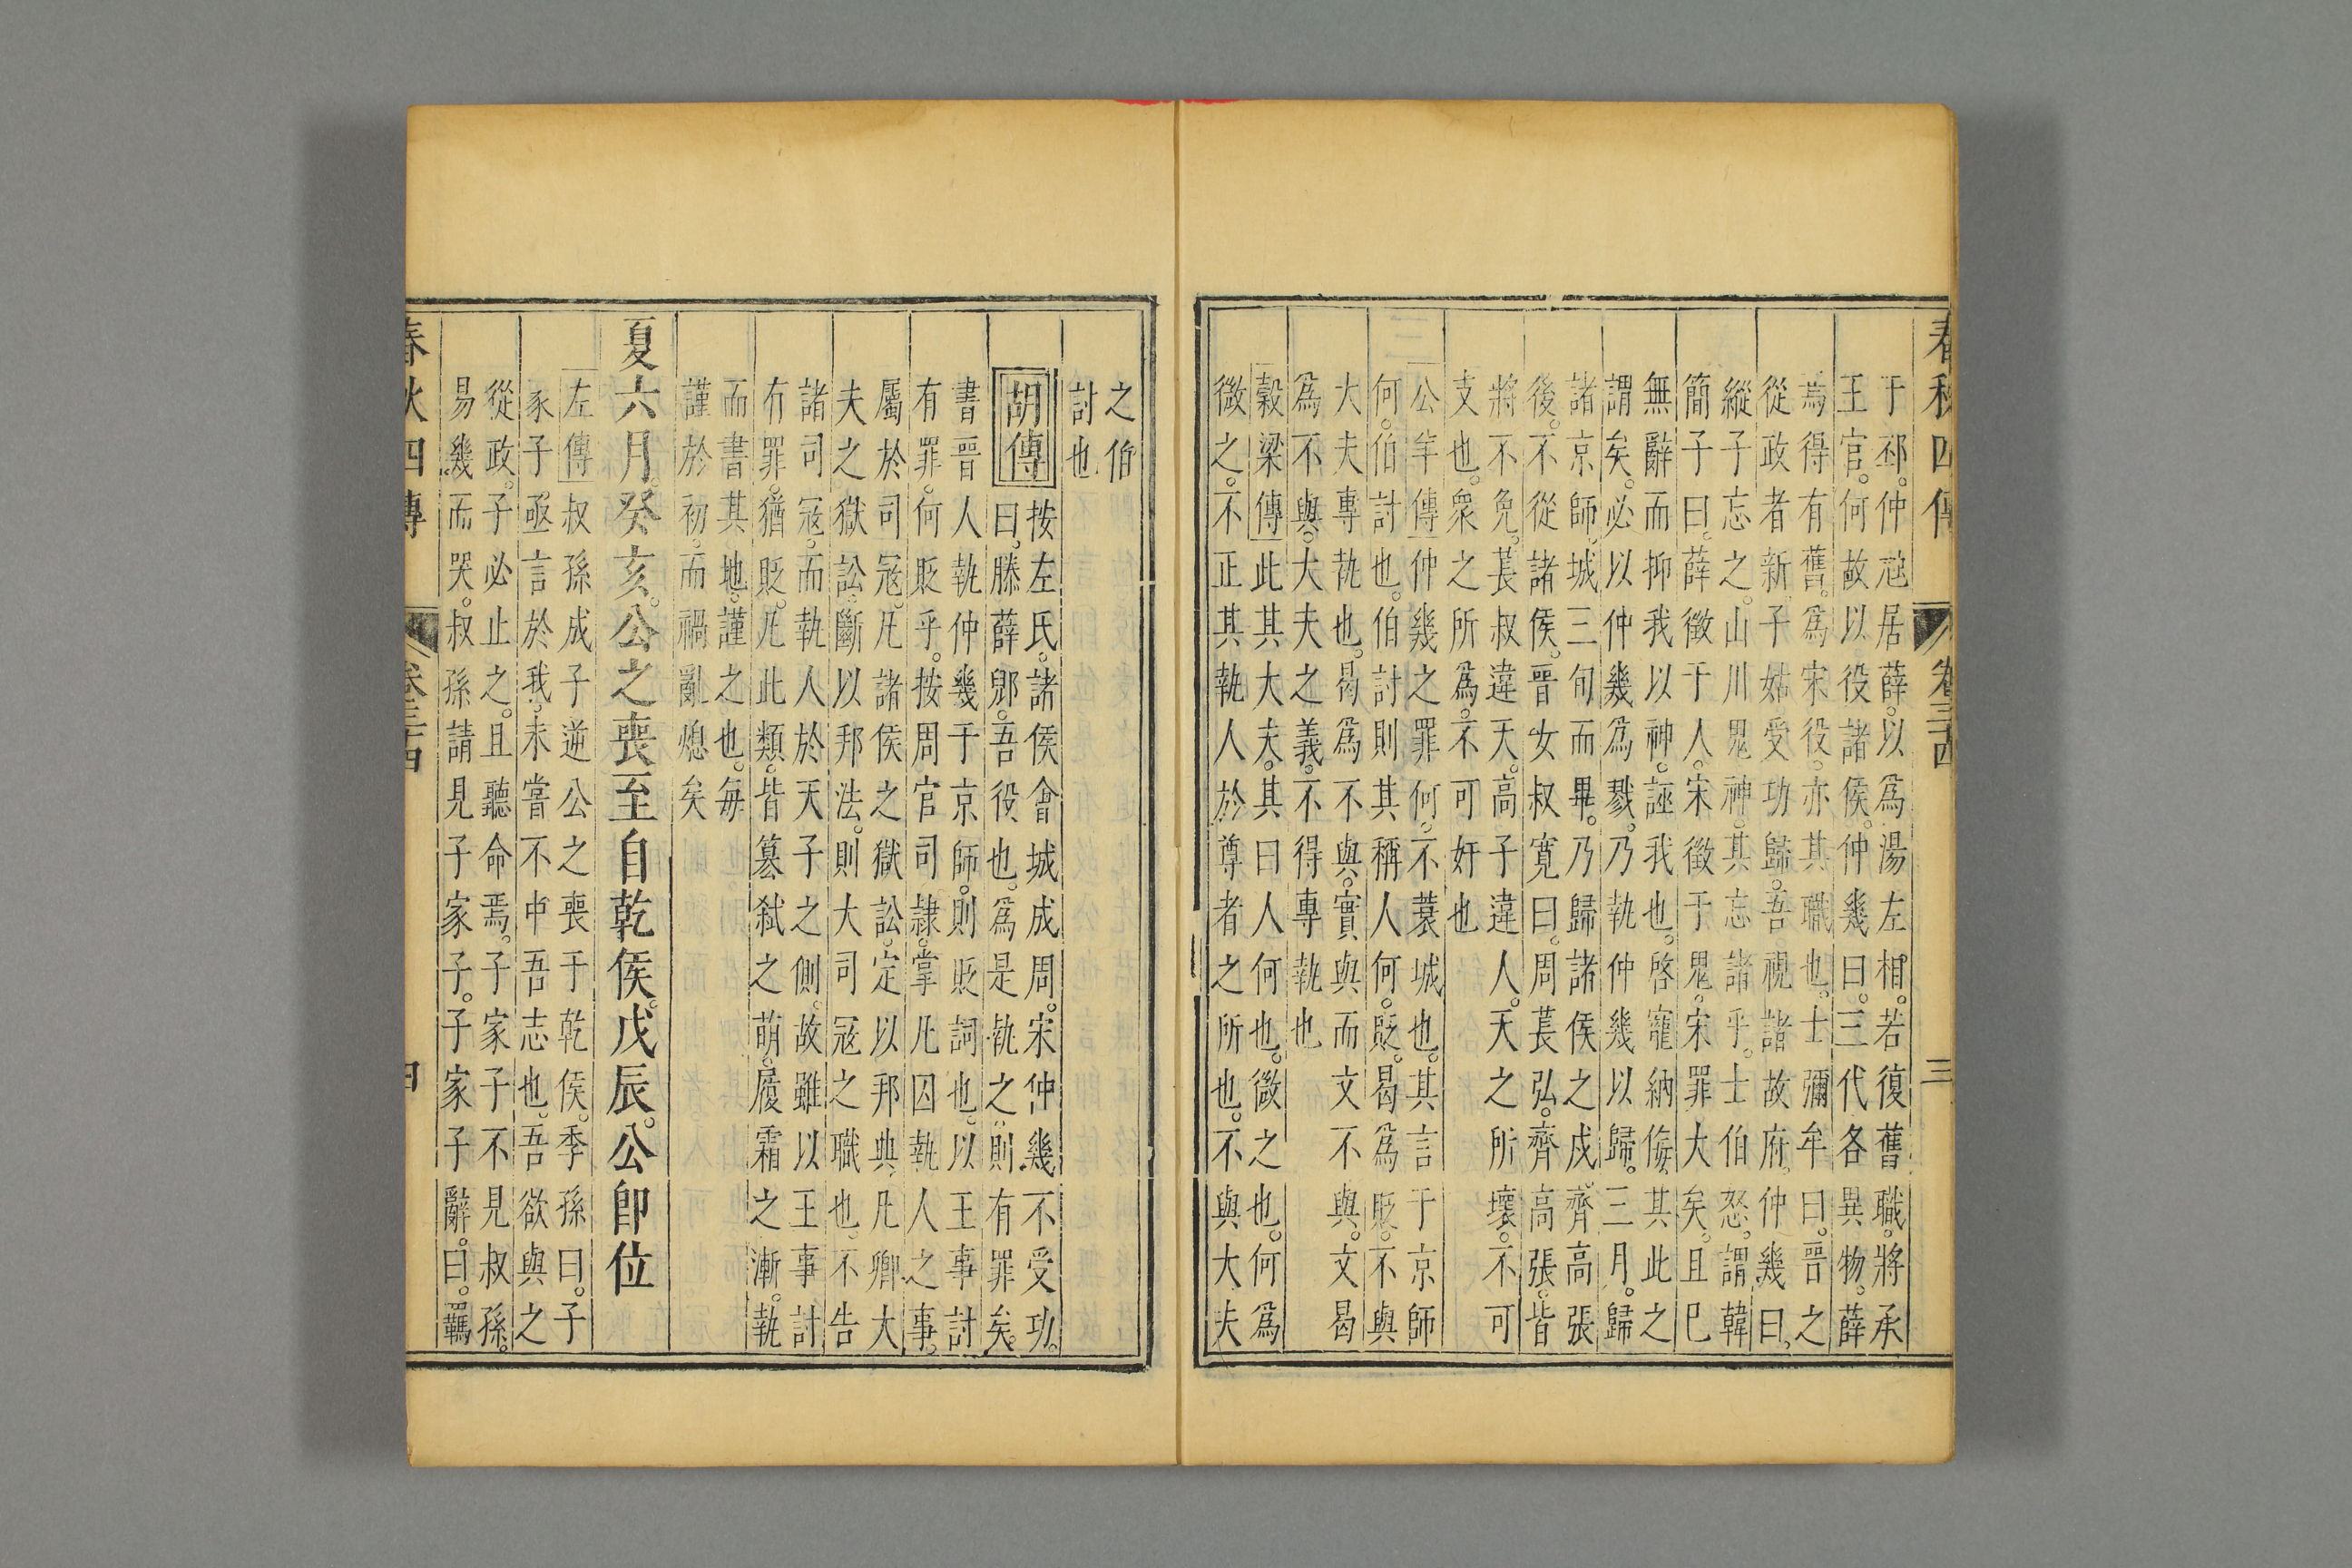 春秋四傳 卷三十四 三
于邳仲虺居薛以爲湯左相若復舊職將承
王官何故以役諸侯仲幾曰三代各異物薛
焉得有舊爲宋役亦其職也士彌牟曰晉之
從政者新子姑受功歸吾視諸故府仲幾曰
縱子忘之山川鬼神其忘諸乎士伯怒謂韓
簡子曰薛徵于人宋徵于鬼宋罪大矣且已
無辭而抑我以神誣我也啓寵納侮其此之
謂矣必以仲幾爲戮乃執仲幾以歸三月歸
諸京師城三旬而畢乃歸諸侯之戍齊高張
後不從諸侯晉女叔寬曰周萇弘齊高張皆
將不免萇叔違天高子違人天之所壞不可
支也衆之所爲不可奸也
公羊傳仲幾之罪何不蓑城也其言于京師
何伯討也伯討則其稱人何貶曷爲貶不與
大夫專執也曷爲不與實與而文不與文曷
爲不與大夫之義不得專執也
穀梁傳此其大夫其曰人何也微之也何爲
微之不正其執人於尊者之所也不與大夫
之伯
討也
胡傳按左氏諸侯會城成周宋仲幾不受功
曰滕薛郳吾役也爲是執之則有罪矣
書晉人執仲幾于京師則貶詞也以王事討
有罪何貶乎按周官司隸掌凡囚執人之事
屬於司寇凡諸侯之獄訟定以邦典凡卿大
夫之獄訟斷以邦法則大司寇之職也不告
諸司寇而執人於天子之側故雖以王事討
有罪猶貶凡此類皆篡弒之萌履霜之漸執
而書其地謹之也每
謹於初而禍亂熄矣
夏六月癸亥公之喪至自乾侯戊辰公即位
左傳叔孫成子逆公之喪于乾侯季孫曰子
家子亟言於我未嘗不中吾志也吾欲與之
從政子必止之且聽命焉子家子不見叔孫
易幾而哭叔孫請見子家子子家子辭曰羈
春秋四傳 卷三十四 四